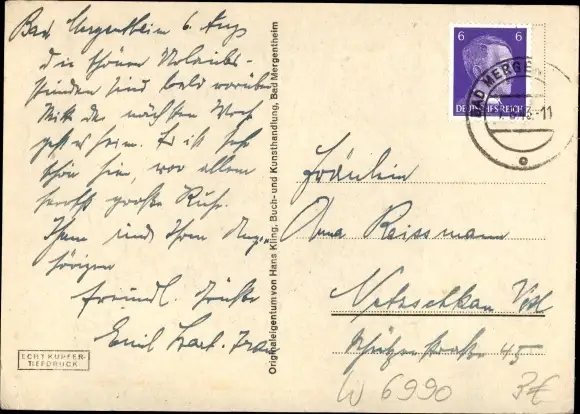 Bad Mergentheim 6. Aug
die schönen Urlaubs-
stunden sind bald vorüber
Mitte der nächsten Woche
geht es heim. Es ist sehr
schön hier, vor allem
herrscht große Ruhe.
Ihnen und Ihren Ange-
hörigen
freundl. Grüße
Emil
ECHT KUPFER-
TIEFDRUCK
Originaleigentum von Hans Kling, Buch- und Kunsthandlung, Bad Mergentheim
6 6
DEUTSCHES REICH
BAD MERGEN
-11
Fräulein
Anna Reissmann
Netzschkau Vgtl
Schützenstraße 45
W 6990
3€